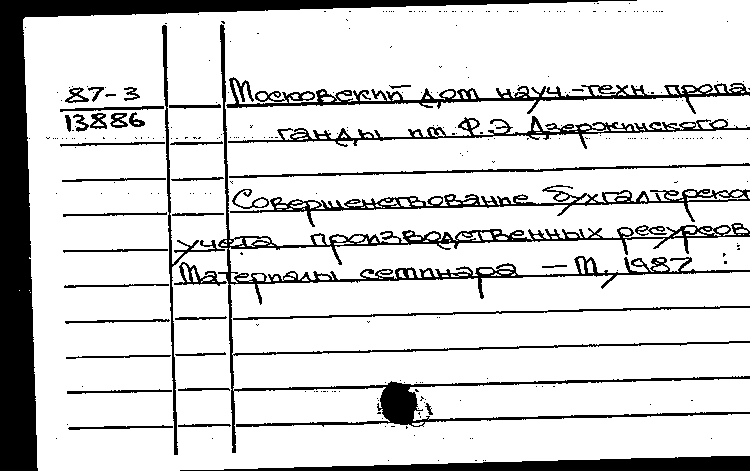 87-3
13886
Московский дом науч.-техн. пропа-
ганды им. Ф.Э. Дзержинского.
Совершенствование бухгалтерског
учета производственных ресурсов:
Материалы семинара — М., 1987.